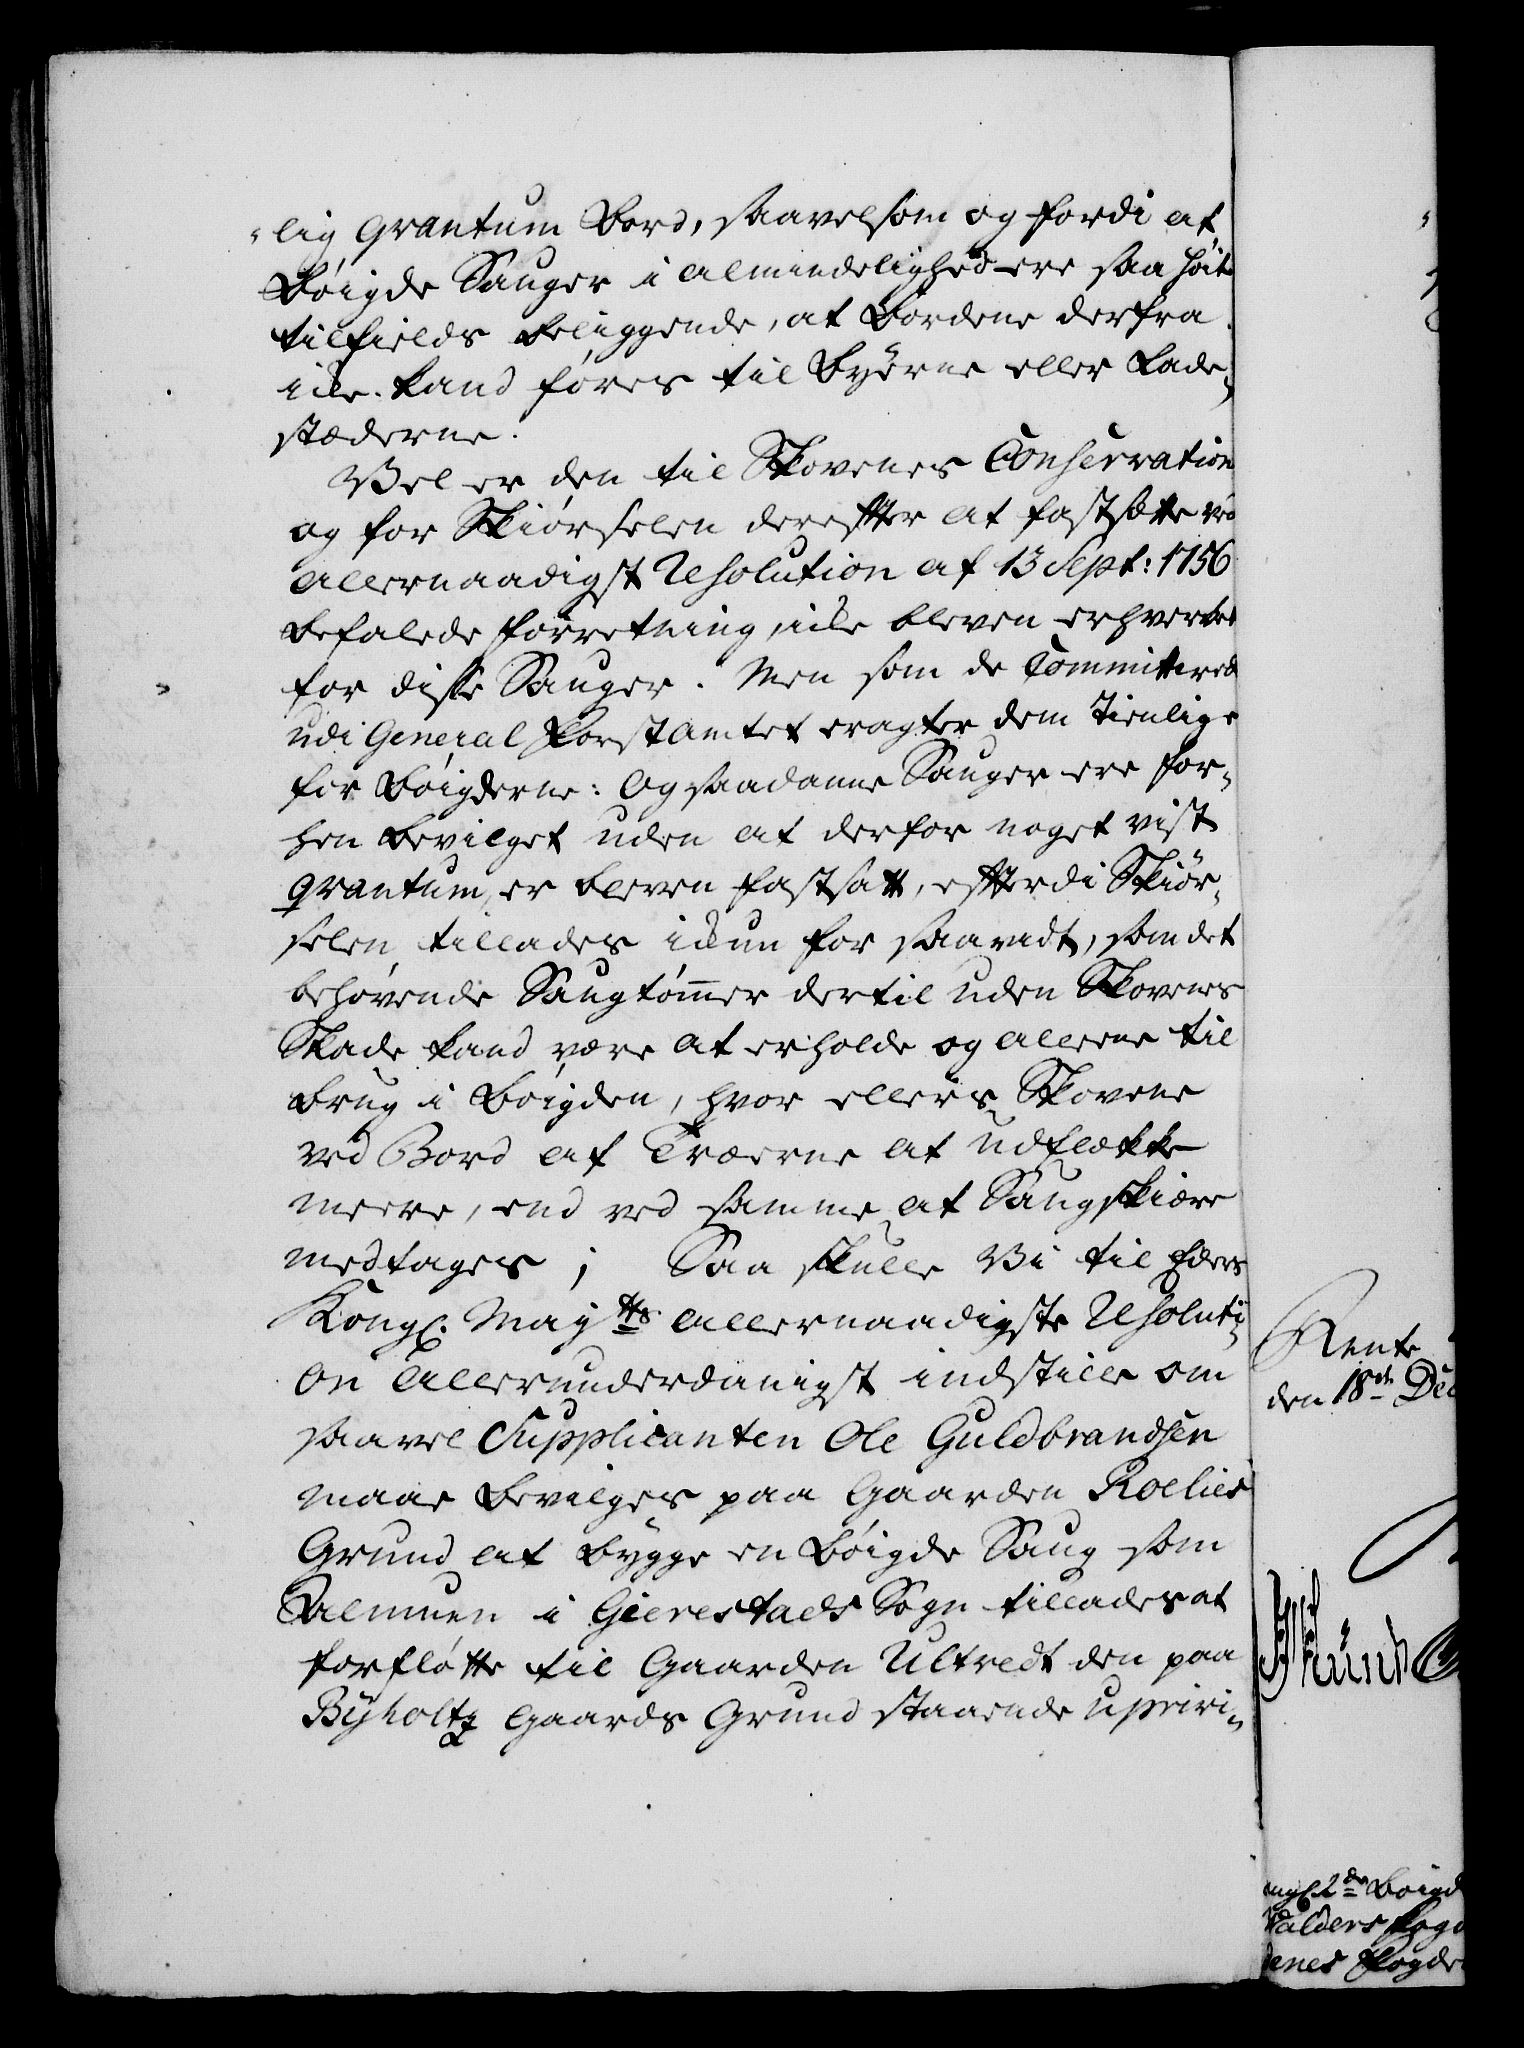 -lig Qvantum Bord, saavelsom og fordi at
Böigde Sauger i Almindelighed ere saa höit
tilfields beliggende, at Bordene derfra
icke kand föres til Byerne eller Lade-
stæderne.
Vel er den til Skovenes Conservation
og for Skiörselen derefter at fastsætte ved
allernaadigst Resolution af 13 Sept: 1756
befalede Forretning, icke bleven erhvervet
for disse Sauger. Men som de Committerede
udi General Forstamtet eragter dem tienlige
for Böigderne: Og saadanne Sauger ere for-
hen bevilget uden at derfor noget vist
Qvantum er bleven fastsatt, efterdi Skiör-
selen tillades ickun for saavidt, som det
behövende Saugtömmer dertil uden Skovenes
Skade kand være at erholde og allene til
Brug i Böigden, hvor ellers Skovene
ved Bord af Træerne at udflække
meere, end ved samme at Saugskiære
medtages; Saa skulle Vi til Eders
Kongl. Mayts allernaadigste Resoluti-
on allerunderdanigst indstille om
saavel Supplicanten Ole Guldbrandsen
maae bevilges paa Gaarden Roelies
Grund at bygge en Böigde Saug som
Almuen i Gierestads Sogn tillades at
forflötte til Gaarden Ultvedt den paa
Byholtz Gaards Grund staaende uprivi-
Rente
den 18de Dec
2de Böigd
Valders Fogd
Fogde